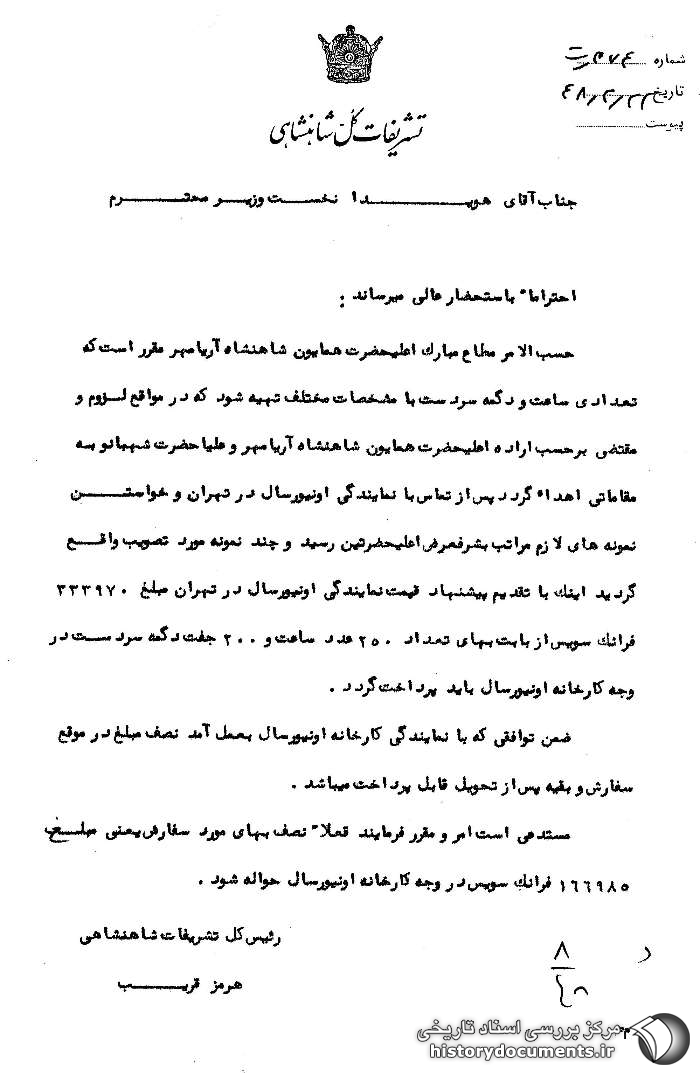 شماره
تاریخ ۴۸,۳,۲۲
پیوست
تشریفات کل شاهنشاهی
جناب آقای هویدا نخست وزیر محترم
احتراما" باستحضار عالی میرساند :
حسب الامر مطاع مبارك اعلیحضرت همایون شاهنشاه آریامهر مقرر است که
تعدادی ساعت و دگمه سردست با مشخصات مختلف تهیه شود که در مواقع لزوم و
مقتضی برحسب اراده اعلیحضرت همایون شاهنشاه آریامهر و علیاحضرت شهبانو به
مقاماتی اهداء گردد پس از تماس با نمایندگی اونیورسال در تهران و خواستن
نمونه های لازم مراتب بشرفعرض اعلیحضرتین رسید و چند نمونه مورد تصویب واقع
گردید اینك با تقدیم پیشنهاد قیمت نمایندگی اونیورسال در تهران مبلغ ۳۳۳۹۷۰
فرانك سویس از بابت بهای تعداد ۲۵۰ عدد ساعت و ۲۰۰ جفت دگمه سردست در
وجه کارخانه اونیورسال باید پرداخت گردد .
ضمن توافقی که با نمایندگی کارخانه اونیورسال بعمل آمد نصف مبلغ در موقع
سفارش و بقیه پس از تحویل قابل پرداخت میباشد .
مستدعی است امر و مقرر فرمایند فعلا" نصف بهای مورد سفارش یعنی مبلغ
۱۶۶۹۸۵ فرانك سویس در وجه کارخانه اونیورسال حواله شود .
رئیس کل تشریفات شاهنشاهی
هرمز قریب
م
مرکز بررسی اسناد تاریخی
historydocuments.ir